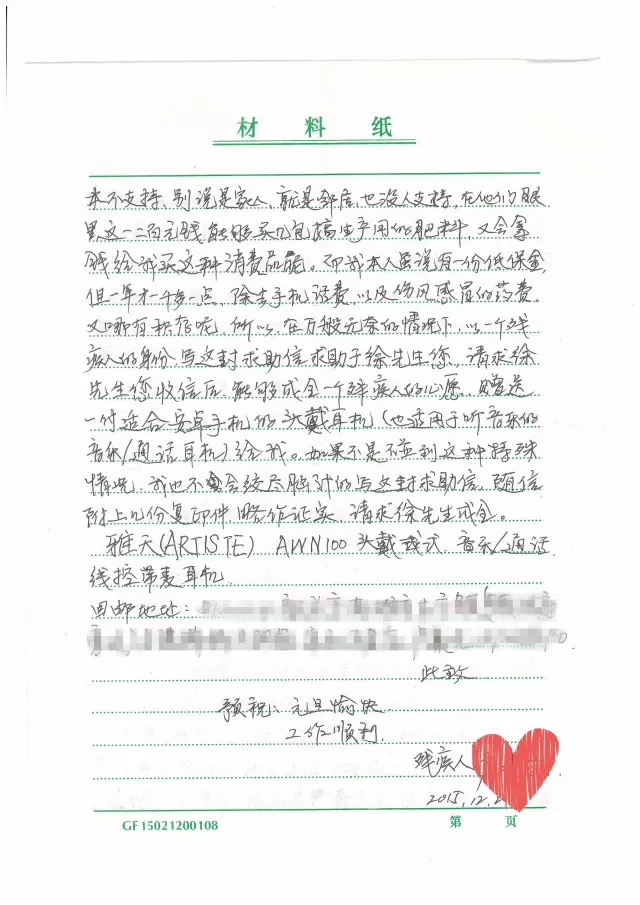 材料纸
本不支持,别说是家人,就是邻居,也没人支持,在他们眼
里这一二百元钱,能够买几包搞生产用的肥料,又会拿
钱给我买这种消费品呢。而我本人虽说有一份低保金,
但一年才一千多一点,除去手机话费,以及伤风感冒的药费,
又哪有积存呢,所以,在万般无奈的情况下,以一个残
疾人的身份,写这封求助信求助于徐先生您,请求徐
先生您收信后,能够成全一个残疾人的心愿,赠送
一付适合安卓手机的头戴耳机(也适用于听音乐的
音乐/通话耳机)给我。如果不是不碰到这种特殊
情况,我也不会绞尽脑汁的写这封求助信,随信
附上几份复印件,略作证实,请求徐先生成全。
雅天(ARTISTE) AWN100头戴式,音乐/通话
线控带麦耳机
回邮地址:
此致
预祝:元旦愉快
工作顺利
残疾人
2015.12.2
GF15021200108
第 页